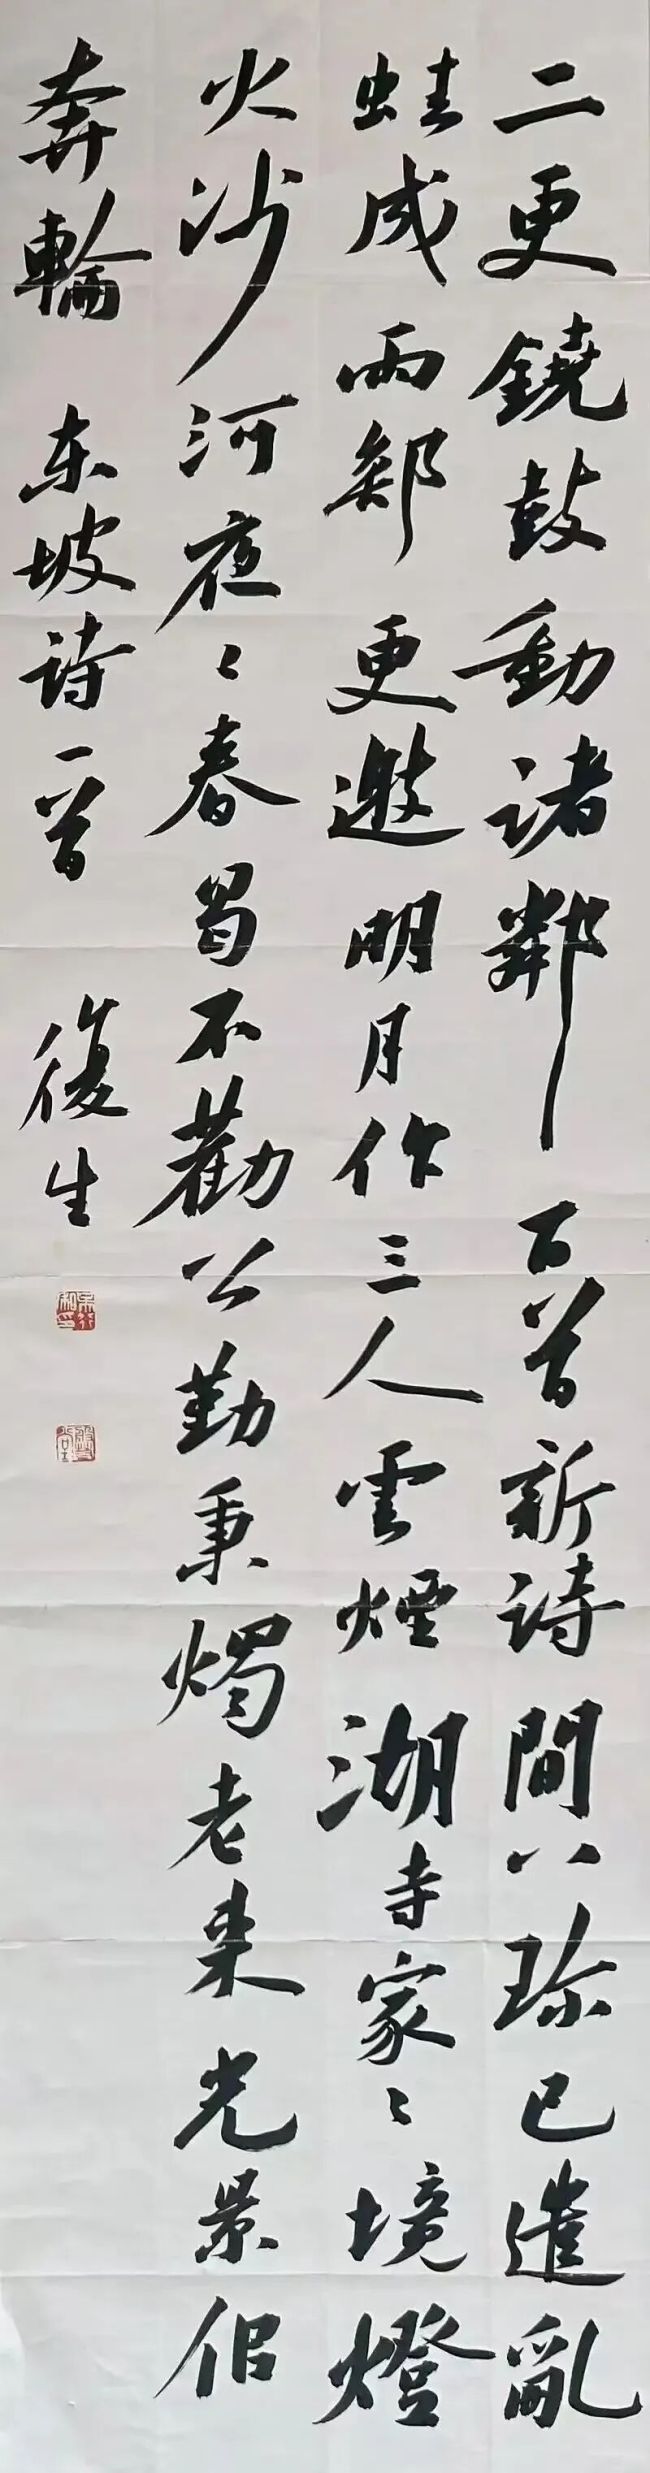 二更鐃鼓動诸鄰百首新诗間八珍已遣亂
蛙成兩部更邀明月作三人雲煙湖寺家々境燈
火沙河夜々春曷不勸公勤秉燭老来光景似
奔輪 东坡诗一首 復生